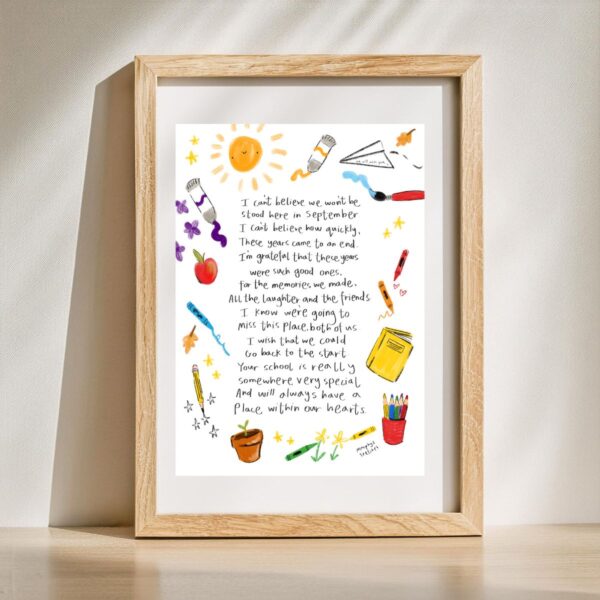 I can't believe we won't be
stood here in September
I can't believe how quickly,
These years came to an end.
I'm grateful that these years
were such good ones.
For the memories we made.
All the laughter and the friends
I know we're going to
Miss this place, both of us
I wish that we could
Go back to the start
Your school is really
somewhere very special
And will always have a
Place within our hearts.